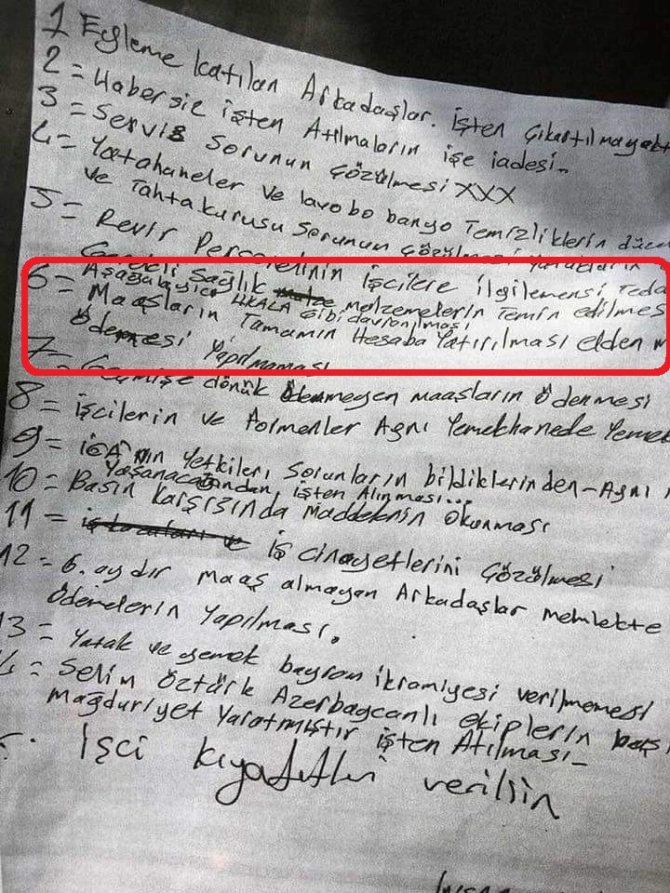 1 Eyleme katılan Arkadaşlar. işten çıkartılmayaktı
2 = Habersiz işten Atılmaların işe iadesi.
3 = Servis Sorunun çözülmesi XXX
4 = Yatahaneler ve lavobo banyo Temizliklerin
ve Tahtakurusu Sorunun çözülmesi
5 = Revir Personelinin işçilere ilgilemensi Teda
Gerekli Sağlık melzemelerin Temin edilmes
Aşağalayici HKALA Gibi davranılması
6 = Maaşların Tamamın Hesaba Yatırılması elden
Ödemesi Yapılmaması
7 = Geçmişe dönük Ödenmeyen maaşların Ödenmesi
8 = işçilerin ve Formenler Aynı Yemekhanede Yemek
9 = iGA'nın Yetkileri Sorunların bildiklerinden - Aynı
Yaşanacağından işten Alınması...
10 = Basın karşısında maddelenin Okunması
11 = işkazaları ve iş cinayetlerini çözülmesi
12 = 6. aydır maaş almayan Arkadaşlar memlekte
Ödemelerin Yapılması.
13 = Yatak ve yemek bayram ikramiyesi verilmemesi
Selim Öztürk Azerbaycanlı ekiplerin
mağduriyet Yaratmıştır işten Atılması -
işci kıyafetleri verilsin